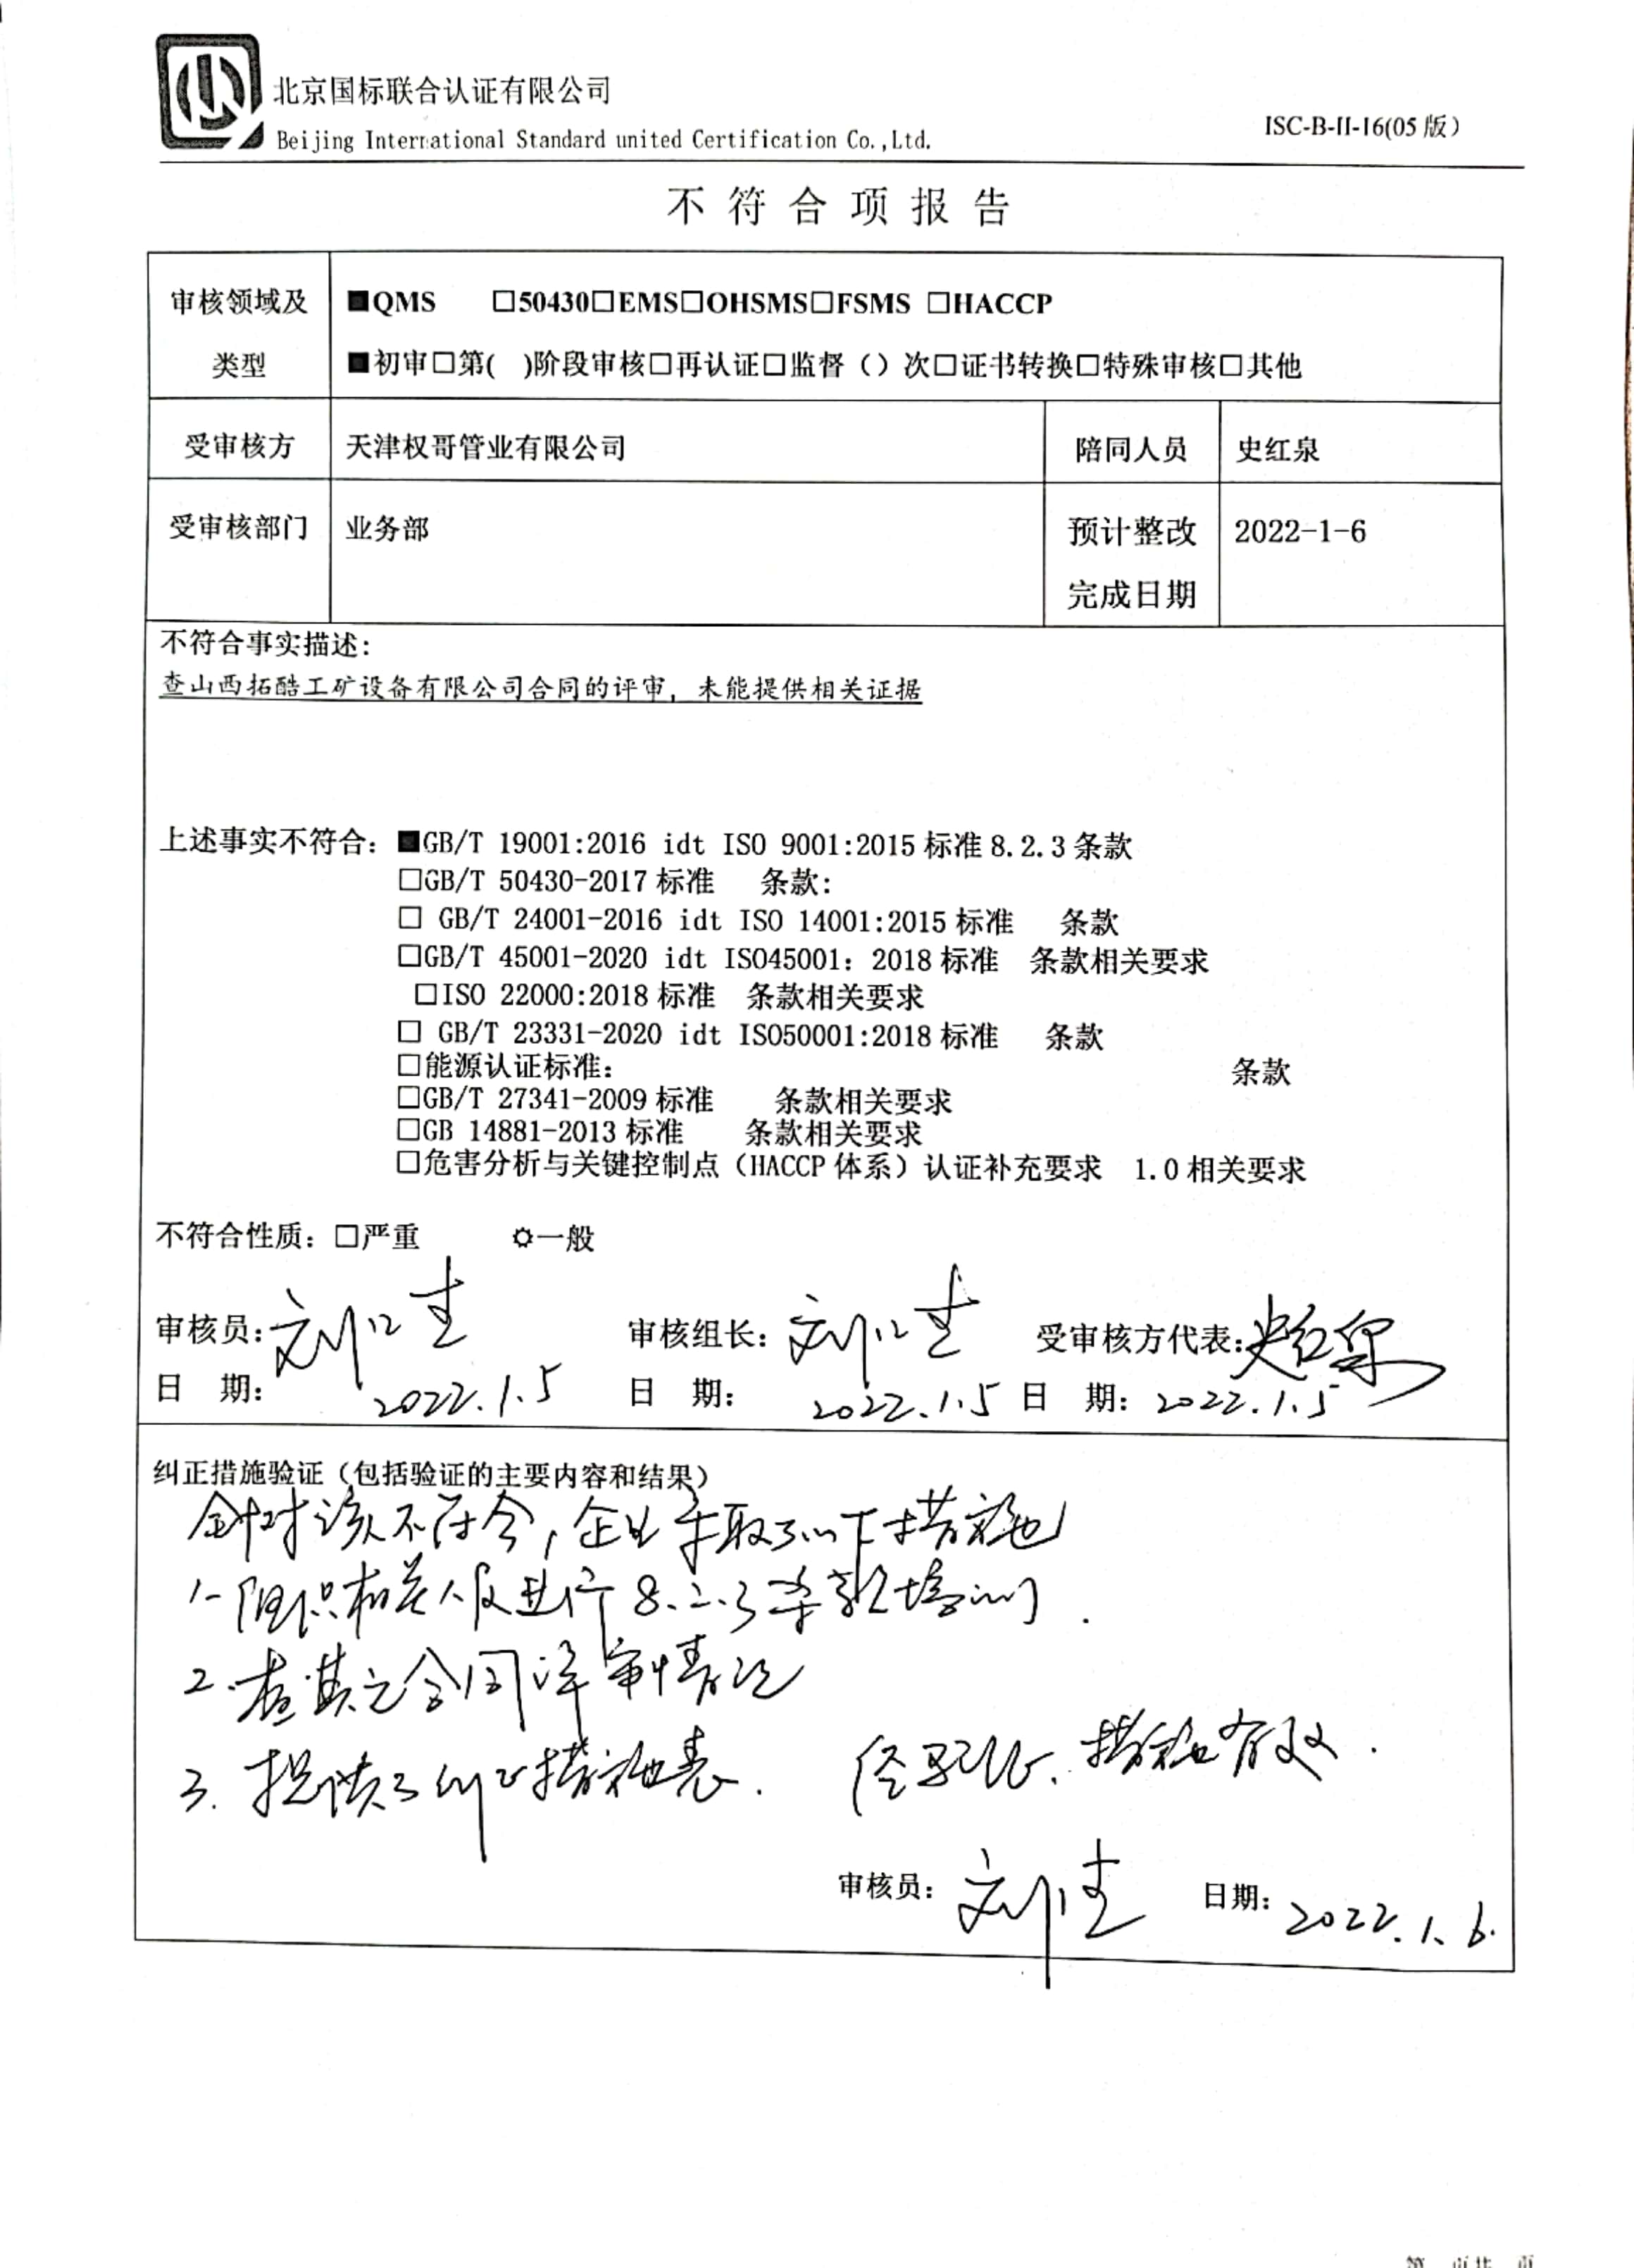 北京国标联合认证有限公司
Beijing International Standard united Certification Co.,Ltd.
ISC-B-II-16(05版)
不符合项报告
审核领域及类型
■QMS □50430□EMS□OHSMS□FSMS □HACCP
■初审□第( )阶段审核□再认证□监督（）次□证书转换□特殊审核□其他
受审核方 天津权哥管业有限公司 陪同人员 史红泉
受审核部门 业务部 预计整改完成日期 2022-1-6
不符合事实描述：
查山西拓酷工矿设备有限公司合同的评审，未能提供相关证据
上述事实不符合：■GB/T 19001:2016 idt ISO 9001:2015 标准 8.2.3 条款
□GB/T 50430-2017 标准 条款：
□ GB/T 24001-2016 idt ISO 14001:2015 标准 条款
□GB/T 45001-2020 idt ISO45001：2018 标准 条款相关要求
□ISO 22000:2018 标准 条款相关要求
□ GB/T 23331-2020 idt ISO50001:2018 标准 条款
□能源认证标准： 条款
□GB/T 27341-2009 标准 条款相关要求
□GB 14881-2013 标准 条款相关要求
□危害分析与关键控制点（HACCP 体系）认证补充要求 1.0 相关要求
不符合性质：□严重 ☼一般
审核员： 审核组长： 受审核方代表：史红泉
日 期：2022.1.5 日 期：2022.1.5 日 期：2022.1.5
纠正措施验证（包括验证的主要内容和结果）
针对该不符合，企业采取了以下措施
1.组织相关人员进行8.2.3条款培训.
2.查其它合同评审情况
3.提供了纠正措施表. 经验证、措施有效.
审核员： 日期：2022.1.6.
第 页共 页